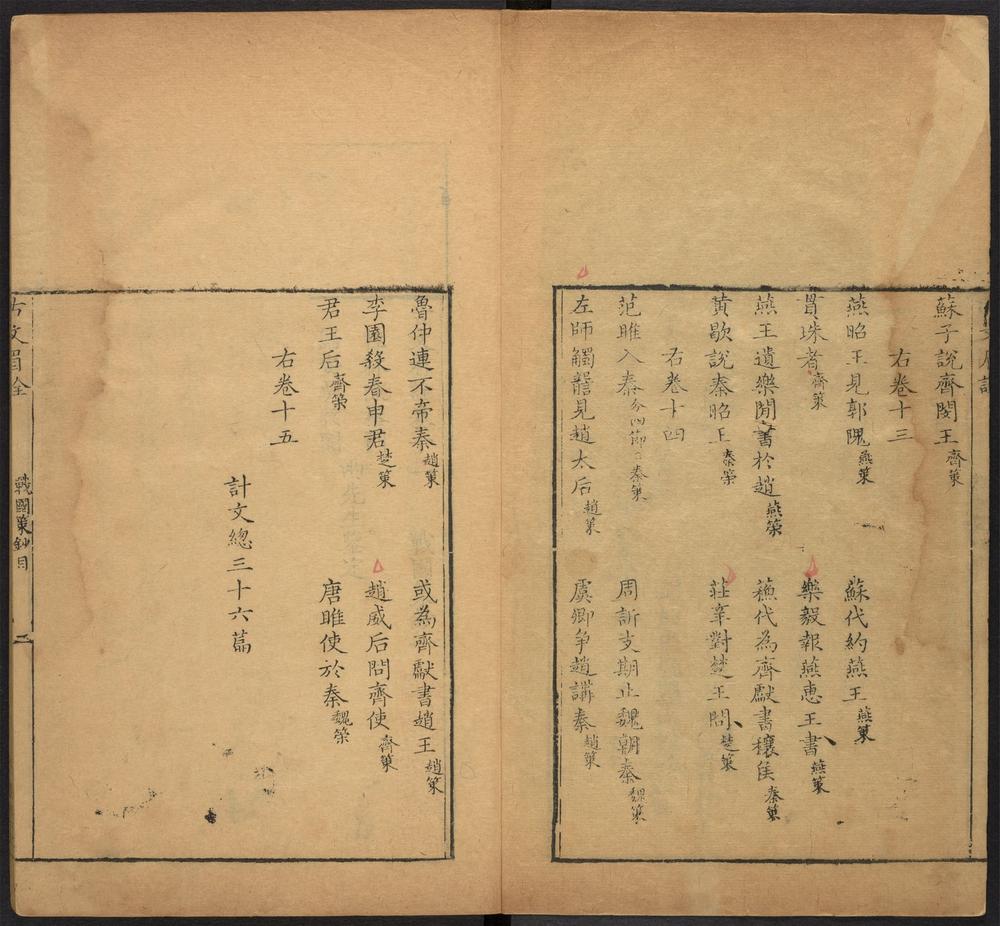 蘇子說齊閔王齊策
右卷十三
燕昭王見郭隗燕策
蘇代約燕王燕策
貫珠者齊策
樂毅報燕惠王書燕策
燕王遺樂閒書於趙燕策
蘓代為齊獻書穰侯秦策
黃歇說秦昭王秦策
莊辛對楚王問楚策
右卷十四
范雎入秦分四節秦策
周訢支期止魏朝秦魏策
左師觸讋見趙太后趙策
虞卿爭趙講秦趙策
魯仲連不帝秦趙策
或為齊獻書趙王趙策
李園殺春申君楚策
趙威后問齊使齊策
君王后齊策
唐雎使於秦魏策
右卷十五
計文總三十六篇
古文眉詮
戰國策鈔目
二